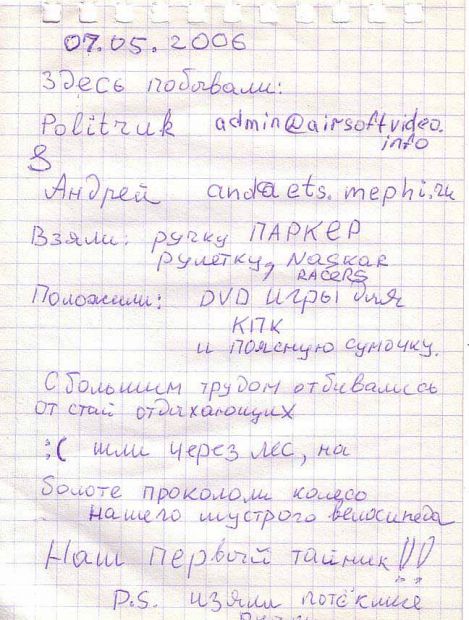 07.05.2006
Здесь побывали:
Politruk admin@airsoftvideo.
info
&
Андрей and@ets.mephi.ru
Взяли: ручку ПАРКЕР
рулетку, Naskar
RACERS
Положили: DVD игры для
КПК
и поясную сумочку.
С большим трудом отбивались
от стай отдыхающих
;( шли через лес, на
болоте прокололи колесо
нашего шустрого велосипеда
Наш первый тайник!!!
P.S. изяли потёкшие